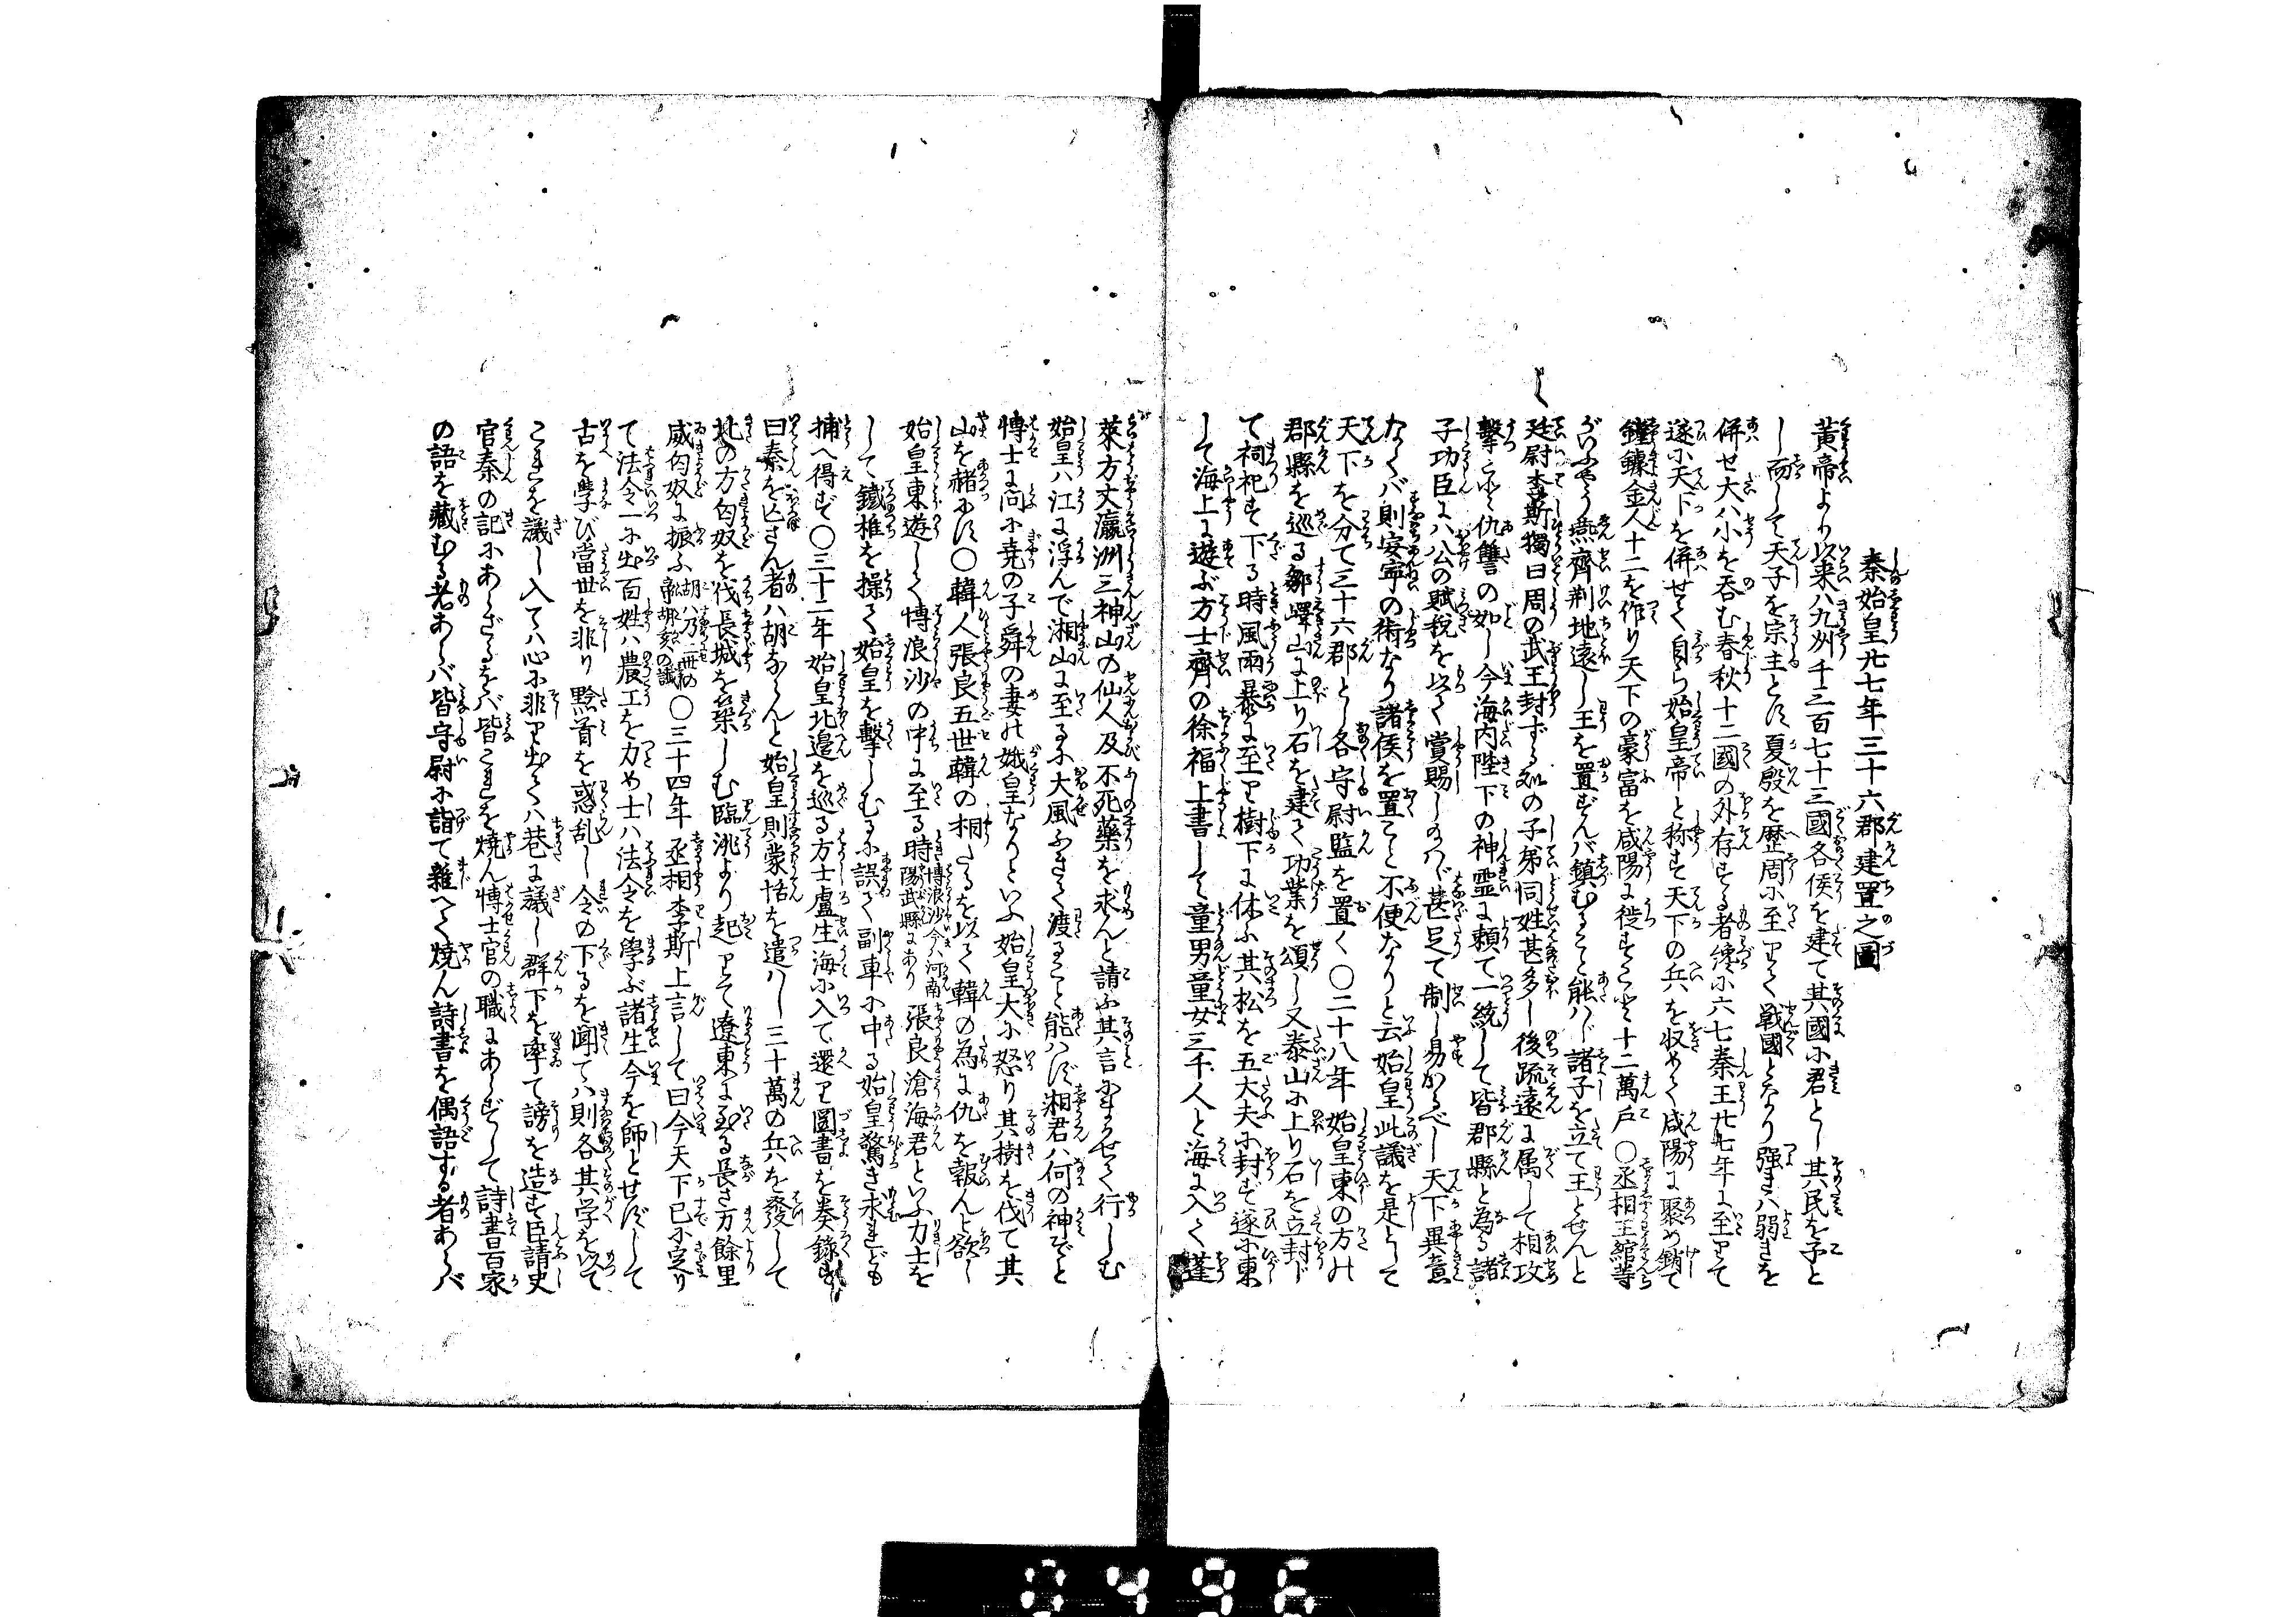 秦始皇廿七年三十六郡建置之圖
黄帝より以来八九洲千三百七十三國各侯を建て其國に君とし其民を子と
し而して天子を宗主とす夏殷を歴周に至りて戦國となり强きハ弱きを
併せ大ハ小を呑む春秋十二國の外存する者纔に六七秦王廿七年に至りて
遂に天下を併せて自ら始皇帝と称す天下の兵を収めて咸陽に聚め銷て
鐘鐻金人十二を作り天下の豪富を咸陽に徙すこと十二萬戸〇丞相王綰等
がいふやう燕齊荊地遠し王を置ずんバ鎮むること能ハじ諸子を立て王とせんと
廷尉李斯獨曰周の武王封ずる処の子弟同姓甚多し後疏遠に属して相攻
擊こと仇讐の如し今海内陛下の神霊に頼て一統して皆郡縣と為る諸
子功臣にハ公の賦税を以て賞賜しめバ甚足て制し易かるべし天下異意
なくバ則安寧の術なり諸侯を置こと不便なりと云始皇此議を是として
天下を分て三十六郡とし各守尉監を置く〇二十八年始皇東の方の
郡縣を巡る鄒嶧山に上り石を建て功業を頌し又泰山に上り石を立封じ
て祠祀す下る時風雨暴に至り樹下に休ふ其松を五大夫に封ず遂に東
して海上に遊ぶ方士齊の徐福上書して童男童女三千人と海に入て蓬
萊方丈瀛洲三神山の仙人及不死藥を求んと請ふ其言にまかせて行しむ
始皇ハ江に浮んで湘山に至るに大風ふきて渡ること能ハず湘君ハ何の神ぞと
博士に問ふ尭の子舜の妻の娥皇なりといふ始皇大に怒り其樹を伐て其
山を赭にす〇韓人張良五世韓の相たるを以て韓の為に仇を報んと欲し
始皇東遊して博浪沙の中に至る時博浪沙今ハ河南陽武縣にあり張良滄海君といふ力士を
して鐵椎を操て始皇を擊しむるに誤て副車に中る始皇驚き求れども
捕へ得ず〇三十二年始皇北邊を巡る方士盧生海に入て還り圖書を奏錄す
曰秦を亡さん者ハ胡ならんと始皇則蒙恬を遣ハし三十萬の兵を發して
北の方匈奴を伐長城を築しむ臨洮より起りて遼東に至る長さ万餘里
威匈奴に振ふ胡ハ乃二世の帝胡亥の讖〇三十四年丞相李斯上言して曰今天下已に定り
て法令一に出百姓ハ農工を力め士ハ法令を學ぶ諸生今を師とせずして
古を學び當世を非り黔首を惑乱し令の下るを聞てハ則各其学を以て
これを議し入てハ心に非り出てハ巷に議し群下を率て謗を造す臣請史
官秦の記にあらざるをバ皆これを焼ん博士官の職にあらずして詩書百家
の語を藏むる者あらバ皆守尉に詣て雜へて焼ん詩書を偶語する者あらバ